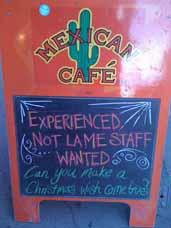 MEXICAN
CAFÉ
EXPERIENCED
NOT LAME STAFF
WANTED
Can you make a
Christmas wish come true?